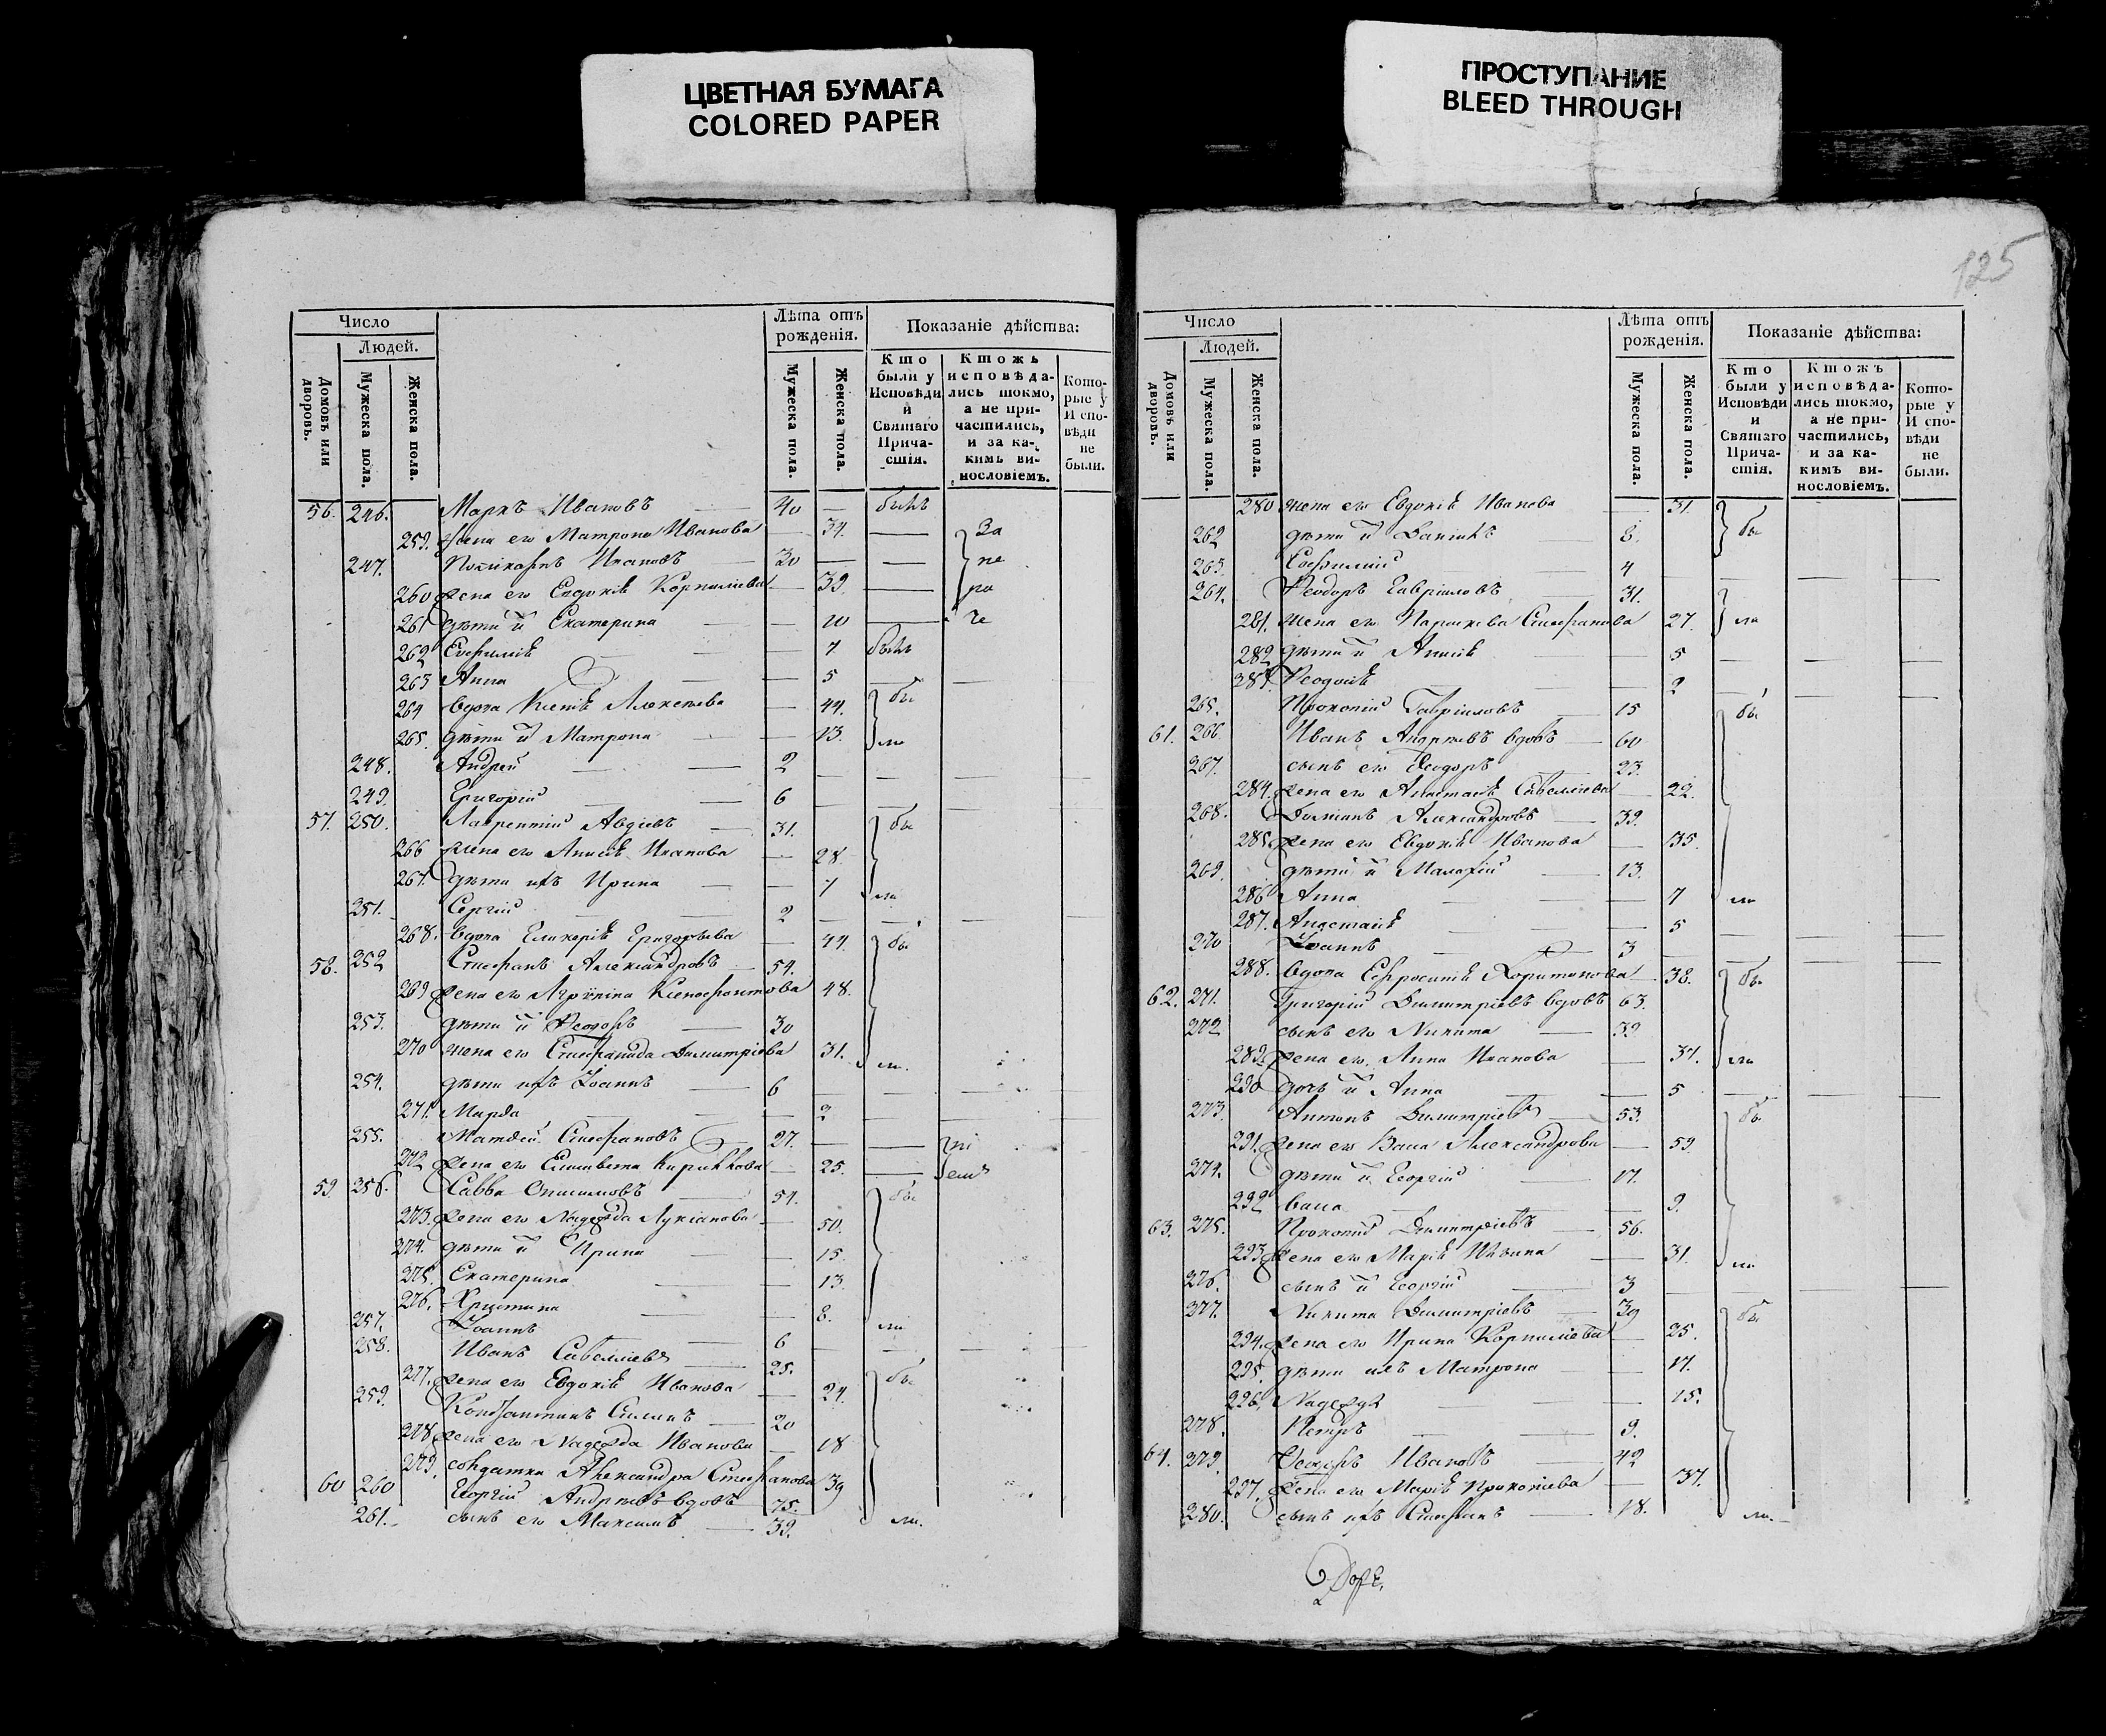 ЦВЕТНАЯ БУМАГА
COLORED PAPER
ПРОСТУПАНИЕ
BLEED THROUGH
125
Число
Людей.
Домовъ или дворовъ.
Мужеска пола.
Женска пола.
Лѣта отъ рожденія.
Мужеска пола.
Женска пола.
Показаніе дѣйства:
Кто были у Исповѣди и Святаго Прича-стія.
Ктожъ исповѣда-лись токмо, а не при-частились, и за ка-кимъ ви-нословіемъ.
Кото-рые у Испо-вѣди не были.
56. 246. Маркъ Ивановъ 40 — былъ
259. жена его Матрона Ивановa — 34. — За
247. Поликарпъ Ивановъ 30 — — не
260 жена его Евдокія Корниліева — 39. — ра
261 дѣти и Екатерина — 10 — че
262 Евфимія — 7
263 Анна — 5 — —
264 вдова Ксенія Алексѣева — 44. бы
265. дѣти и Матрона — 13. ли
248. Андрей 2 — — —
249. Григорій 6 — — —
57. 250. Лаврентій Авдіевъ 31. бы
266 жена его Анисія Иванова — 28.
267. дѣти ихъ Ирина — 7 ли
251. Сергій 2 — — —
268. вдова Гликерія Григорьева — 44 бы
58. 252 Стефанъ Александровъ 54.
269 жена его Агрипина Ксенофонтова 48.
253. дѣти и Феодоръ 30
270 жена его Стефанида Димитріева 31. ли.
254. дѣти ихъ Іоаннъ 6 — — —
271. Марфа — 2 — —
255. Матфей Стефановъ 27. — —
272 жена его Елисавета Кирилова — 25. —
59. 256. Савва Онисимовъ 54. бы
273. жена его Надежда Лукіанова — 50.
274. дѣти и Ирина — 15.
275. Екатерина — 13.
276. Христина — 8. ли
257. Іоаннъ 6 — — —
258. Иванъ Савелліевъ 25. бы
277. жена его Евдокія Иванова — 24.
259. Константинъ 20
278 жена его Надежда Иванова — 18
279. солдатка Александра Стефанова 39
60 260 Георгій Андреевъ вдовъ 75.
261. сынъ его Максимъ 39. ли.
Число
Людей.
Домовъ или дворовъ.
Мужеска пола.
Женска пола.
Лѣта отъ рожденія.
Мужеска пола.
Женска пола.
Показаніе дѣйства:
Кто были у Исповѣди и Святаго Прича-стія.
Ктожъ исповѣда-лись токмо, а не при-частились, и за ка-кимъ ви-нословіемъ.
Кото-рые у Испо-вѣди не были.
280 жена его Евдокія Иванова — 31. бы
262 дѣти и Даниилъ 8.
263. 4 — — —
264. Феодоръ Гавріиловъ 31.
281. жена его Параскева Стефанова 27. ли
282 дѣти и Анисія — 5 — — —
283. Феодосія — 2 — — —
265. Прокопій Гавріиловъ 15 бы
61. 266. Иванъ Андреевъ вдовъ 60
267. сынъ его Феодоръ 23.
284. жена его Анастасія Савелліева — 22.
268. Александровъ 39.
285. жена его Евдокія Иванова — 35.
269. дѣти и 13.
286 Анна — 7 ли
287. Анастасія — 5 — — —
270 Іоаннъ 3 — — —
288. вдова Евфросинія Харитонова — 38. бы
62. 271. Григорій Димитріевъ вдовъ 63.
272 сынъ его Никита 39
289. жена его Анна Иванова — 37. ли
290 дочь и Анна — 5 — — —
273. Антонъ Димитріевъ 53. бы
291. жена его Васса Александрова — 59.
274. дѣти и Георгій 17.
292 Васса — 9.
63. 275. Прокопій Димитріевъ 56.
293. жена его Марія — 31. ли
276. сынъ и Георгій 3 — — —
277. Никита Димитріевъ 39 бы
294. жена его Ирина Корниліева — 25.
295. дѣти ихъ Матрона — 17.
296. Надежда — 15.
278. Петръ 9.
64. 279. Феодоръ Ивановъ 42
297. жена его Марія Прокопіева — 37.
280. сынъ ихъ Стефанъ 18. ли.